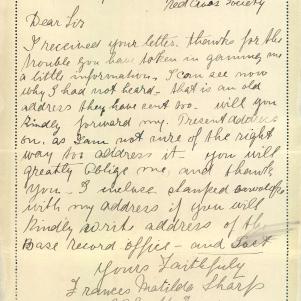 Red Cross Society
Dear Sir
I received your letter. thanks for the
trouble you have taken in gaining me
a little information. I can see now
why I had not heard - that is an old
address they have sent too. will you
kindly forward my. Present address
on. as I am not sure of the right
way too address it you will
greatly oblige me, and thank
you - I inclose stamped envelope
with my address if you will
kindly write address of the
Base record office - and
Yours Faithfully
Frances Matilda Sharp